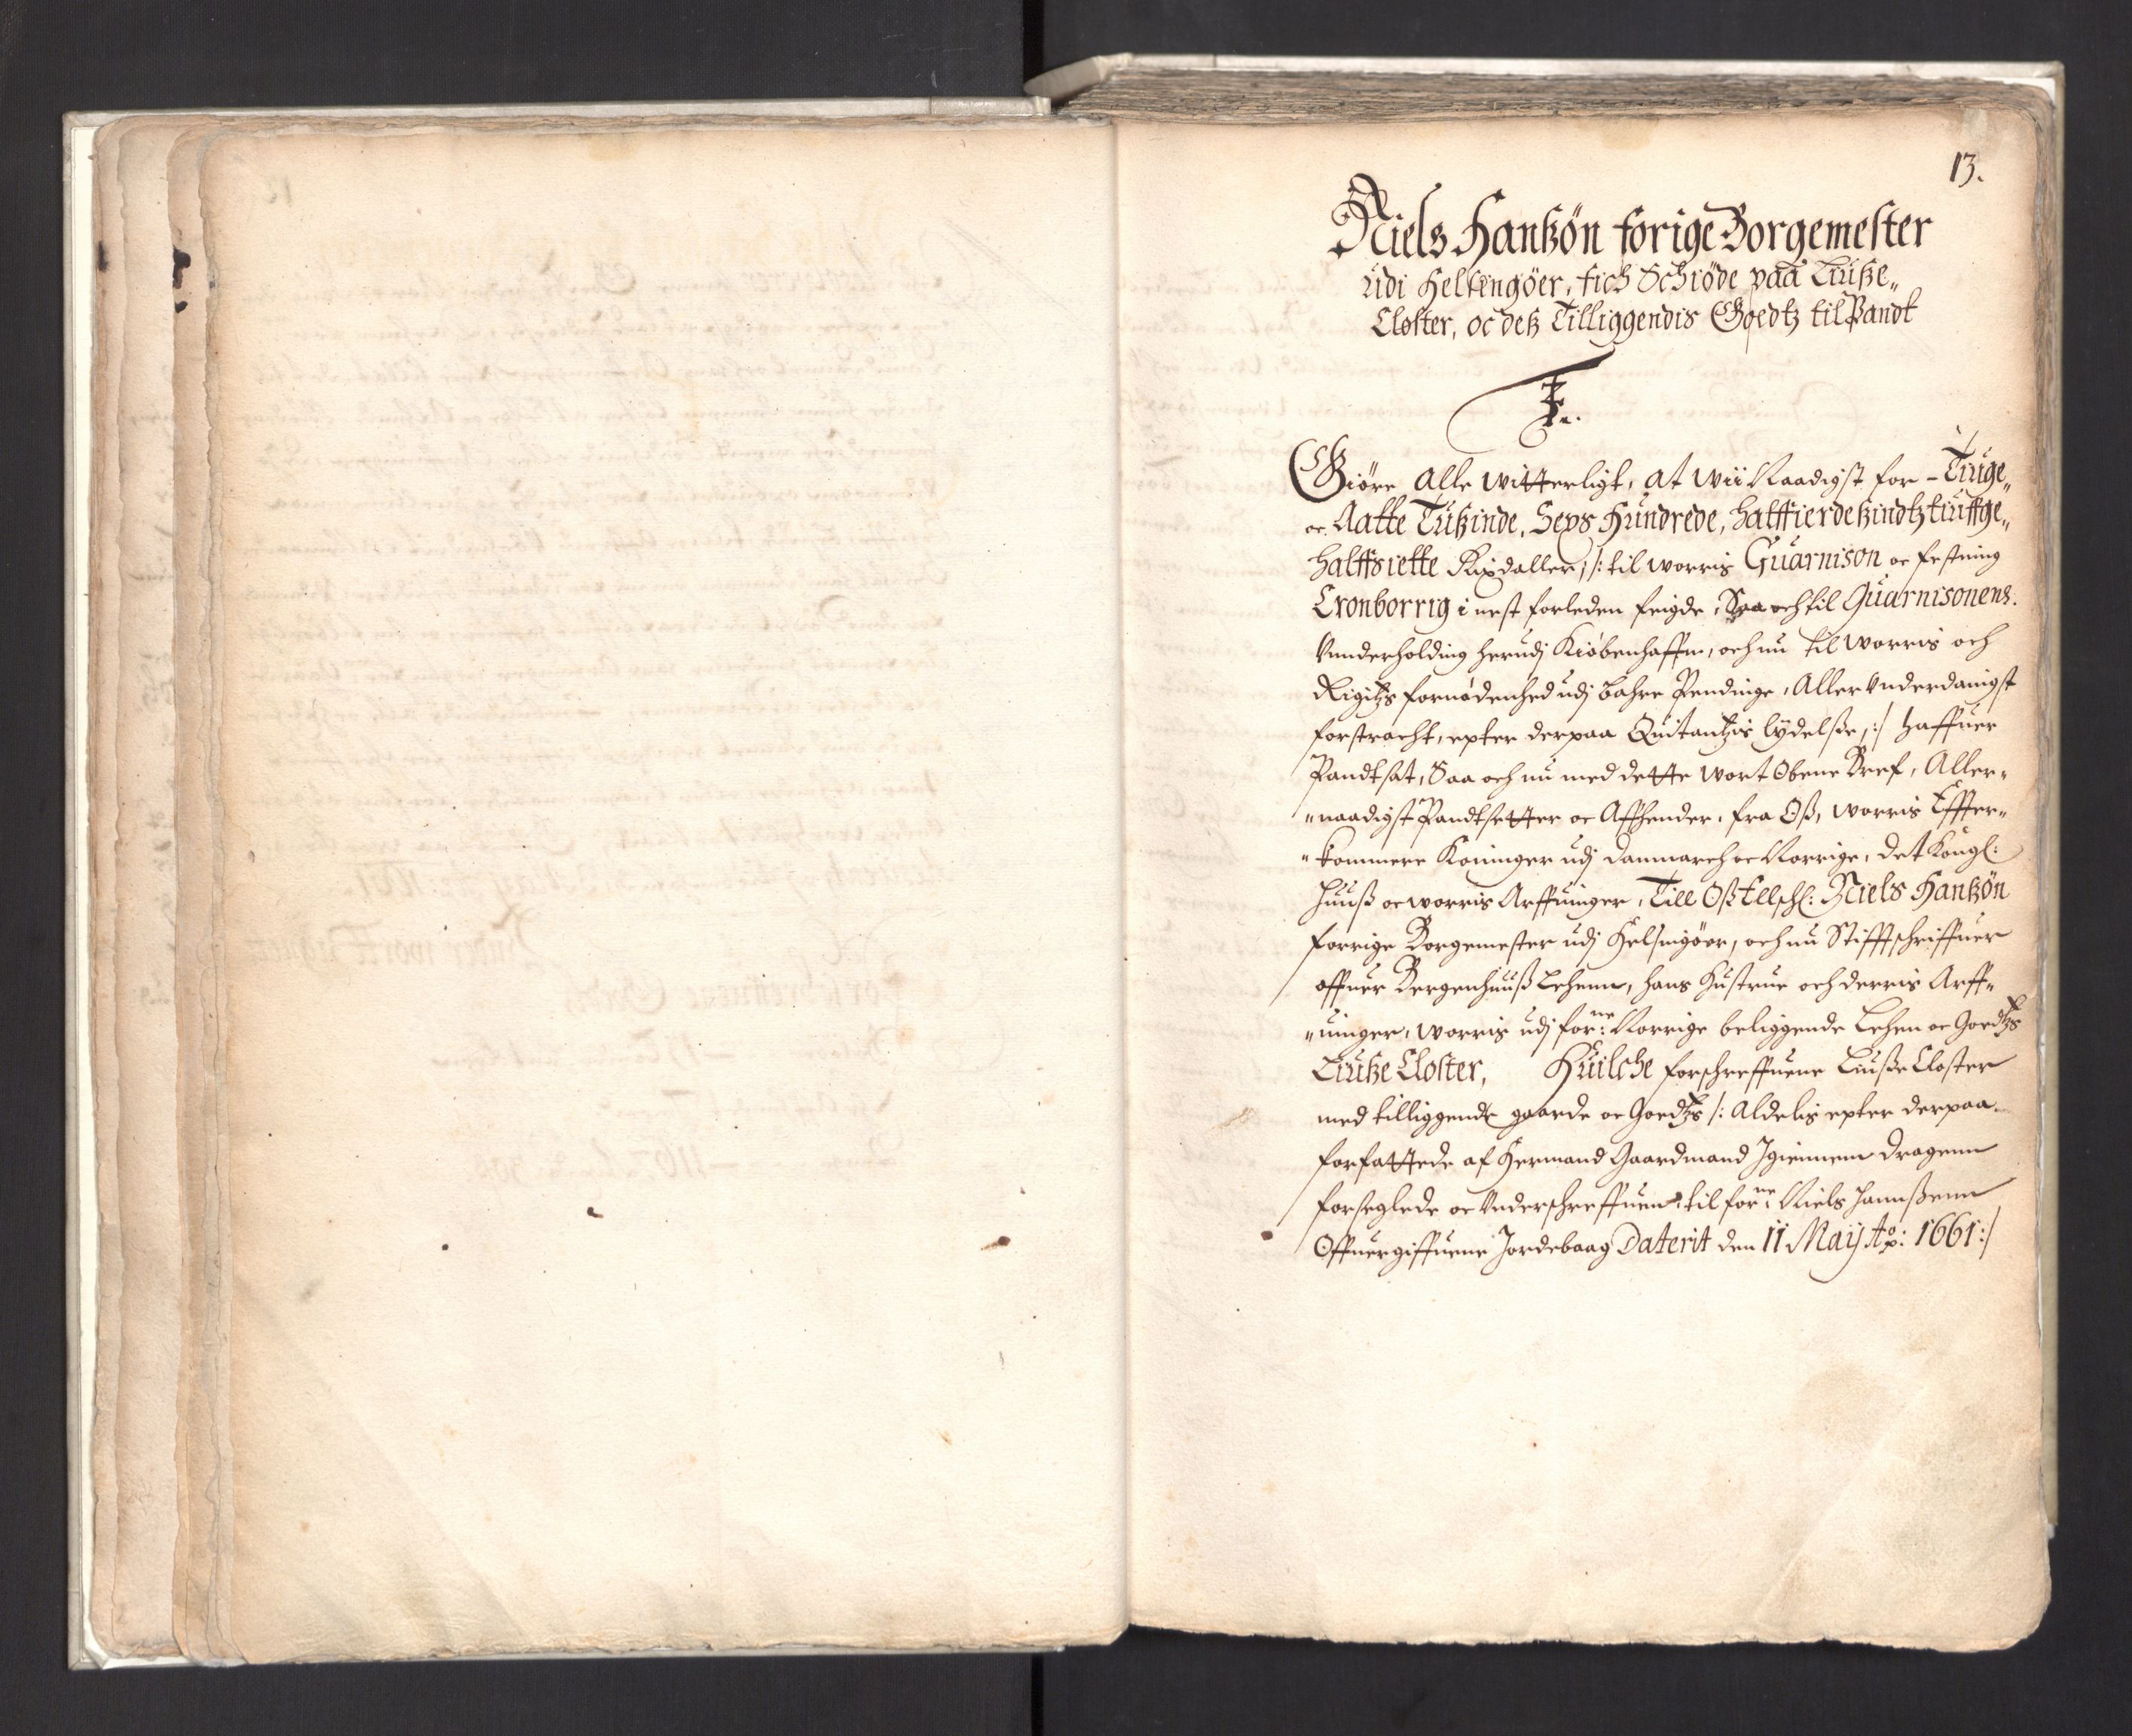 13.
Niels Hanßøn forige Borgemester
udi Helsingöer, fich Schiöde paa Liuße„
Closter, oc deß Tilliggendis Goedtz til Pandt
F.
Giöre Alle Witterligt, at Wii Naadigst for - Tiuge„
oc Aatte Tußinde, Seps Hundrede, halffierdeßindtztiuffge„
halffsiette Rixdaller, /: til Worris Guarnison oc festning
Cronborrig i nest forleden feigde, Saa och til Guarnisonens
Vnderholding herudj Kiöbenhaffn, och nu til Worris och
Rigitzs fornödenhed udj bahre Pendinge, Aller Underdanigst
forstracht, epter derpaa Quitantzis lÿdelße, :/ haffuer
Pandtsat, Saa och nu med dette Wort Obene Bref, Aller„
„naadigst Pandtsetter oc Affhender, fra Oß, Worris Effter„
„kommere Koninger udj Danmarch oc Norrige, det Kongl:
Huuß oc Worris Arffuinger, Till Oß Ellschl: Niels Hanßøn
forrige Borgemester udj Helsingöer, och nu Stifftschriffuer
offuer Bergenhuuß Lehenn, hans Hustrue och derris Arff„
„uinger, Worris udj for:ne Norrige beliggende Lehen oc Goedtzs
Liuße Closter, Huilche forschreffuene Liuße Closter
med tilliggende gaarde oc Goedtzs /: Aldelis epter derpaa
forfattede af Hermand Gaardmand Igiennem dragenn
forseglede oc Underschreffuen, til for:ne Niels Hannßenn
Offuergiffuene Jordebaag Daterit den 11 Maij Ao: 1661 :/